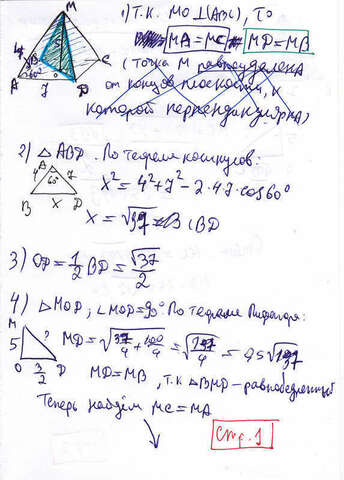 1) Т.К. MO⊥(ABC), ТО
MA=MC MD=MB
(точка M равноудалена
от концов плоскости, к
которой перпендикулярна)
M
4
B
C
A
60°
7
D
O
2) △ABD. По теореме косинусов:
A
4 60° 7
B X D
x² = 4² + 7² - 2·4·7·cos60°
x = √37 = BD
3) OD = 1/2 BD = √37/2
4) △MOD, ∠MOD=90°. По теореме Пифагора:
M
5
?
O D
MD = √(37/4 + 100/4) = √(137/4) = 0,5√137
MD=MB, т.к △BMD - равнобедренный
Теперь найдём MC=MA
Стр. 1